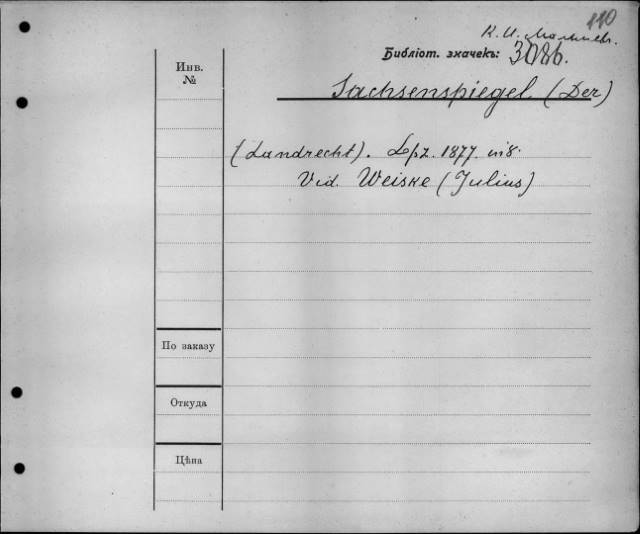 110
К. И. Малышев.
Библіот. значекъ: 308b.
Инв.
№
Sachsenspiegel. (Der)
(Landrecht). Lpz. 1877. in 8.
Vid. Weiske (Julius)
По заказу
Откуда
Цѣна